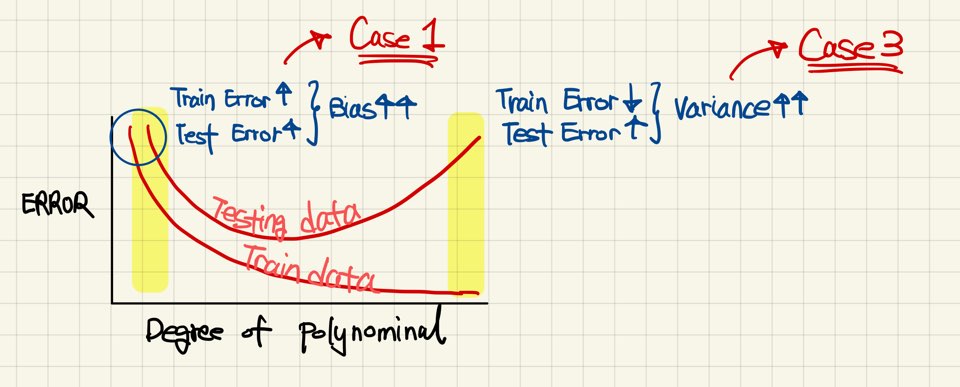 Case 1
Case 3
Train Error ↑
Test Error ↑
} Bias ↑↑
Train Error ↓
Test Error ↑
} Variance ↑↑
ERROR
Testing data
Train data
Degree of Polynominal